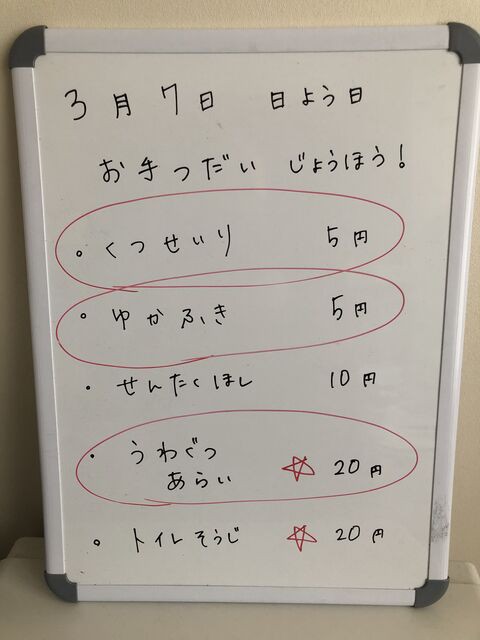 3月7日 日よう日
お手つだい じょうほう!
・くつせいり 5円
・ゆかふき 5円
・せんたくほし 10円
・うわぐつ
あらい ☆ 20円
・トイレそうじ ☆ 20円